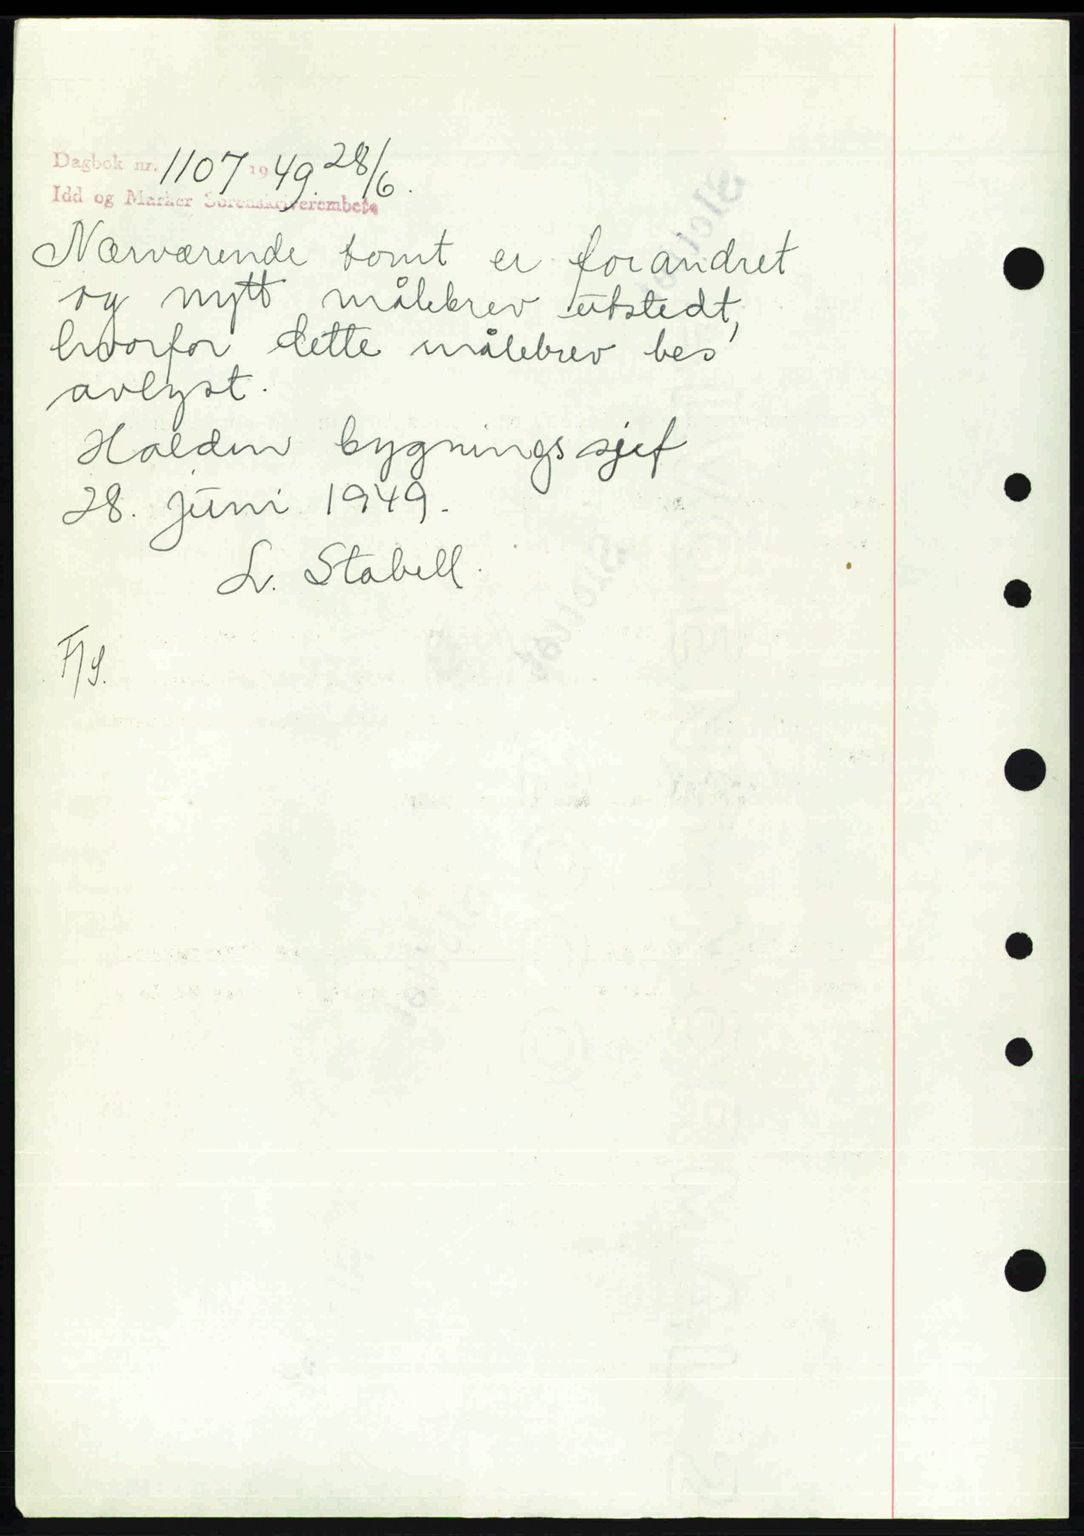 Dagbok nr. 1107 1949. 28/6.
Idd og Marker Sorenskriverembete
Nærværende tomt er forandret
og nytt målebrev utstedt,
hvorfor dette målebrev bes
avlyst.
Halden bygningssjef
28. juni 1949.
L. Stabell.